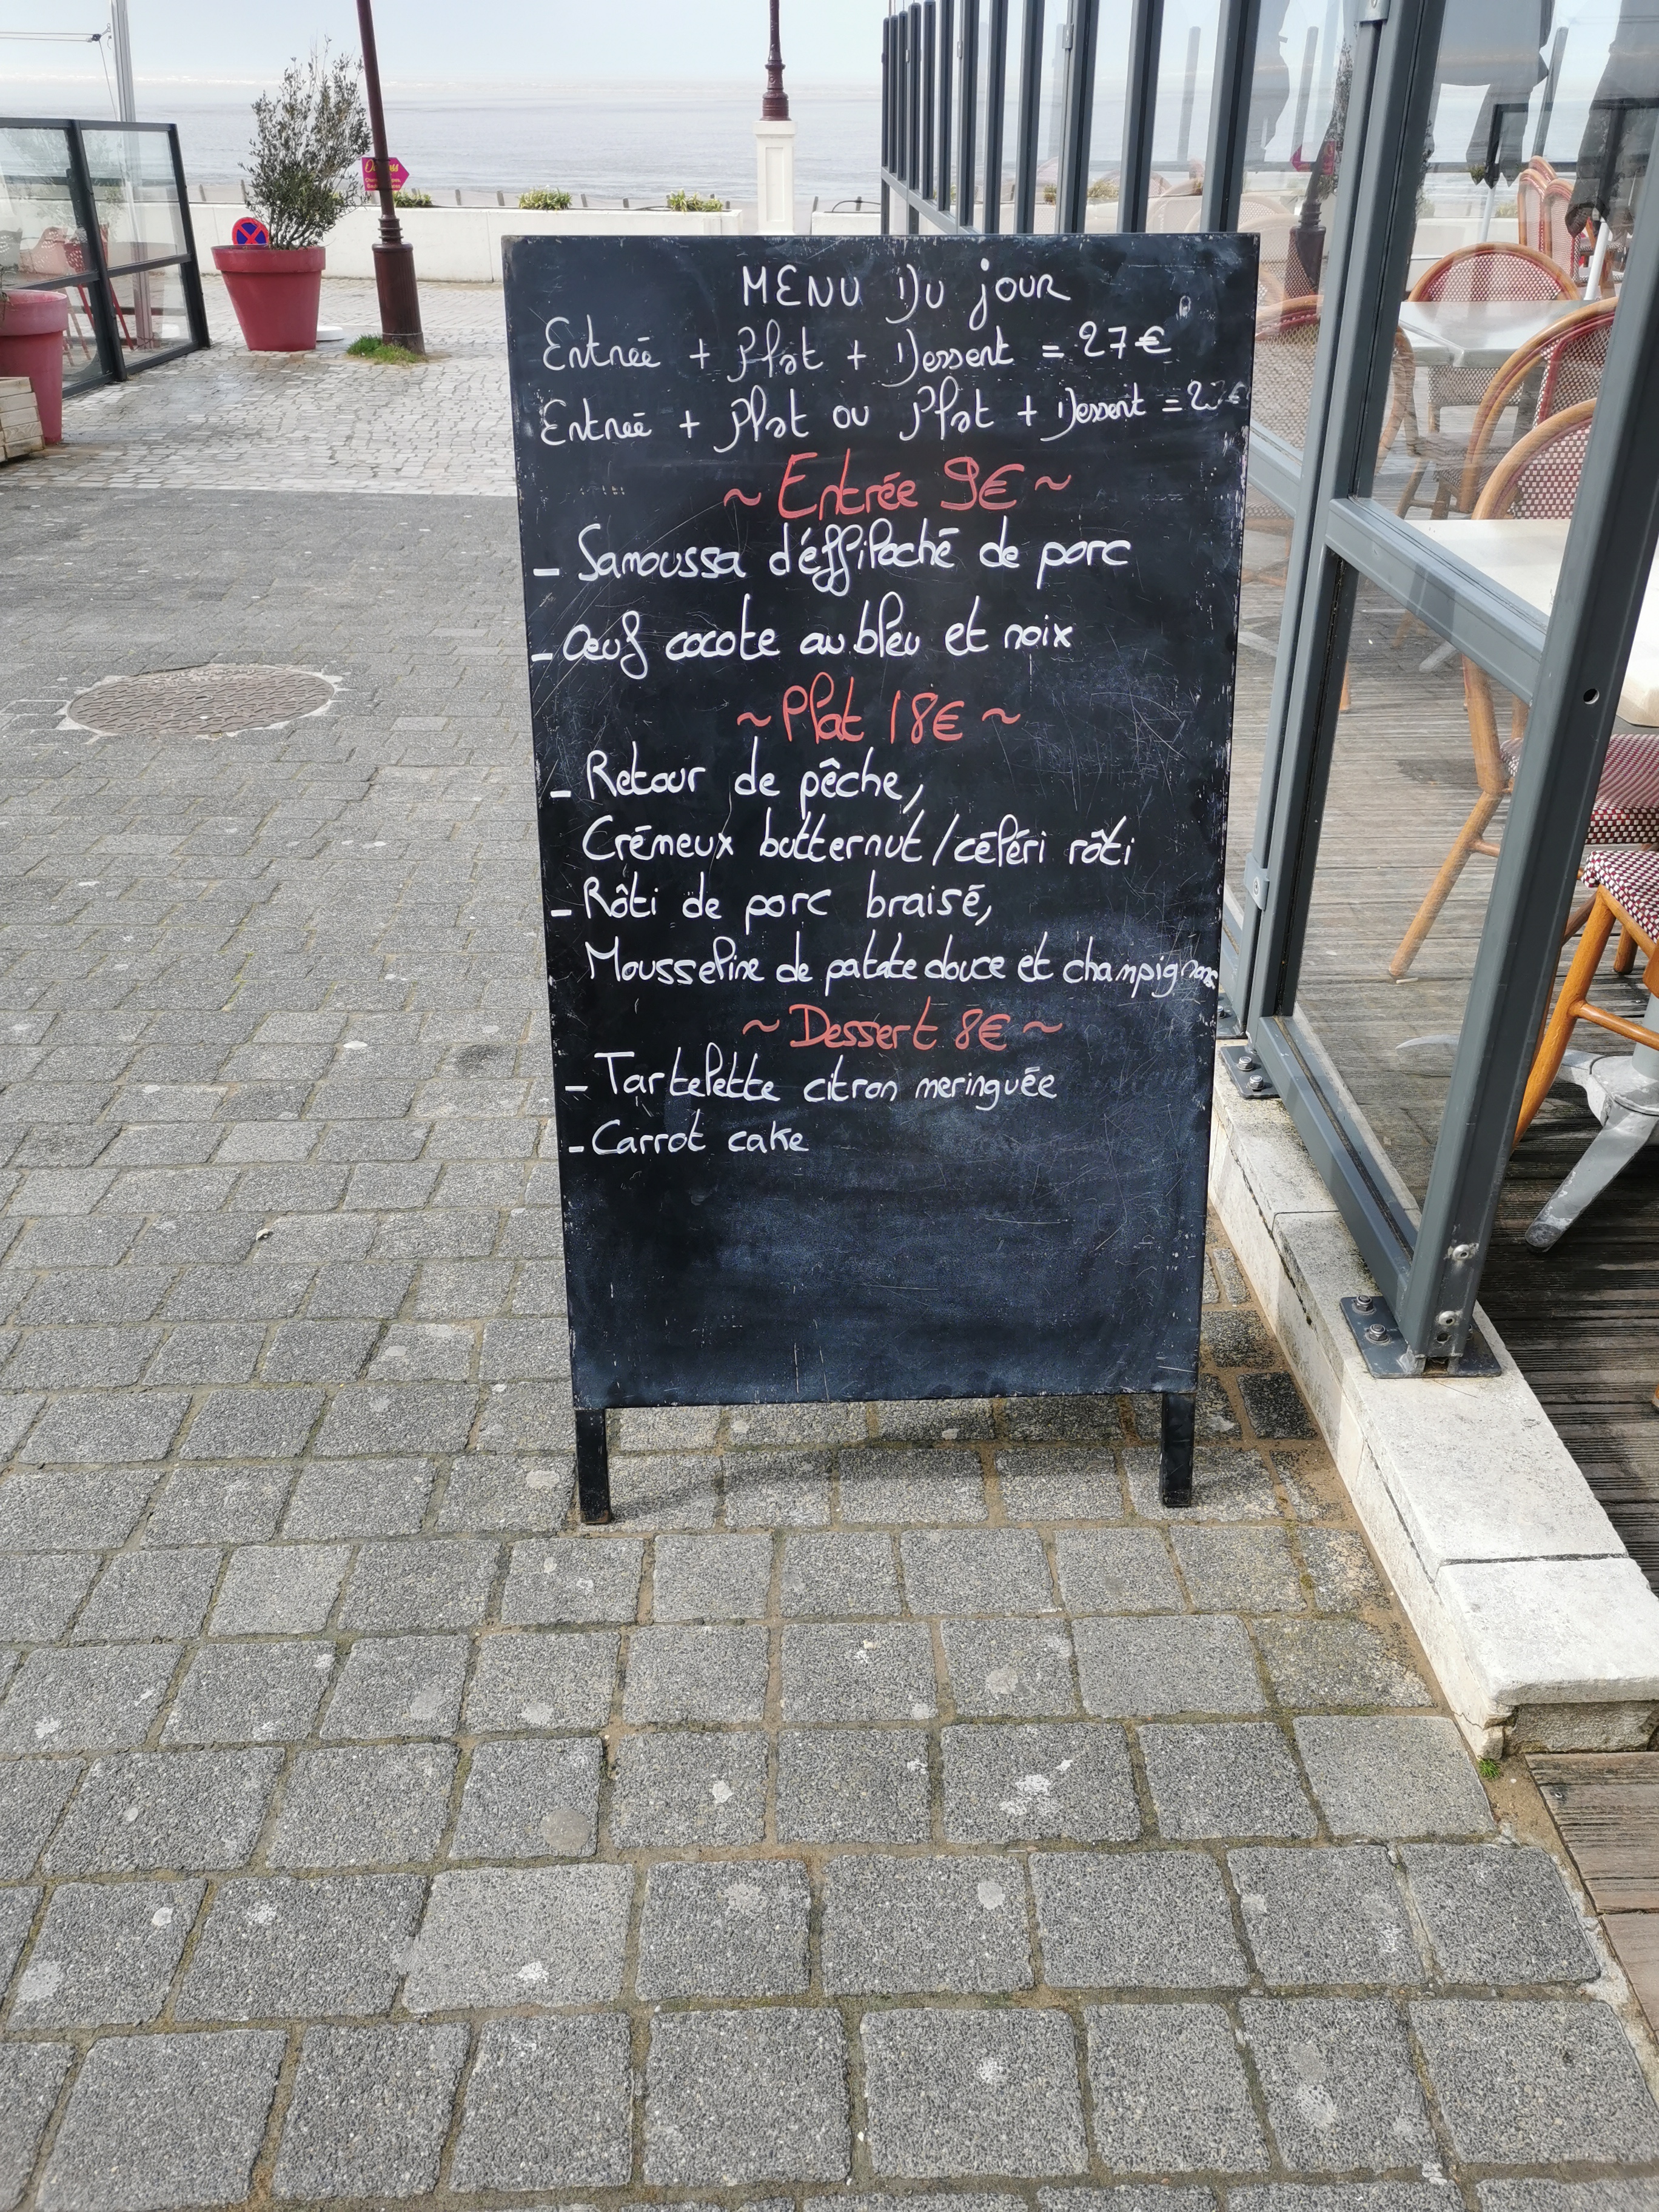 MENU DU jOUR
Entrée + Plat + Dessert = 27€
Entrée + Plat ou Plat + Dessert =
~ Entrée 9€ ~
- Samoussa d'éffiloché de porc
- Œuf cocote au bleu et noix
~ Plat 18€ ~
- Retour de pêche,
Crémeux butternut / céléri rôti
- Rôti de porc braisé,
Mousseline de patate douce et champignons
~ Dessert 8€ ~
- Tartelette citron meringuée
- Carrot cake